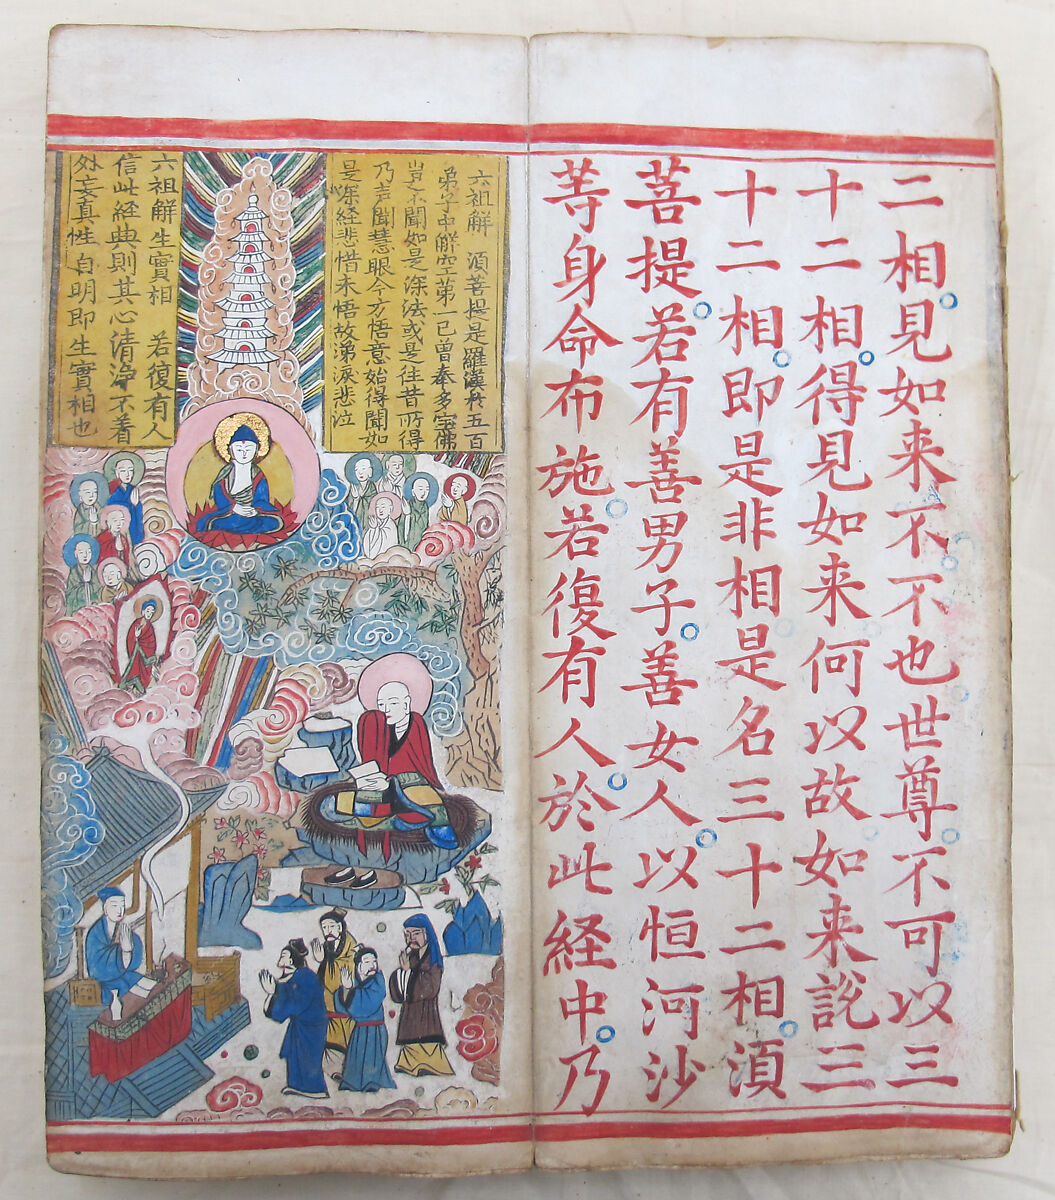 二相見如来不不也世尊不可以三
十二相得見如来何以故如来説三
十二相即是非相是名三十二相湏
菩提若有善男子善女人以恒河沙
等身命布施若復有人於此経中乃
六祖解 湏菩提是羅漢五百
弟子中解空第一已曾奉多宝佛
岂不聞如是深法或是往昔所得
乃声聞慧眼今方悟意始得聞如
是深経悲惜未悟故涕淚悲泣
六祖解生實相 若復有人
信此経典則其心清浄不着
外妄真性自明即生實相也